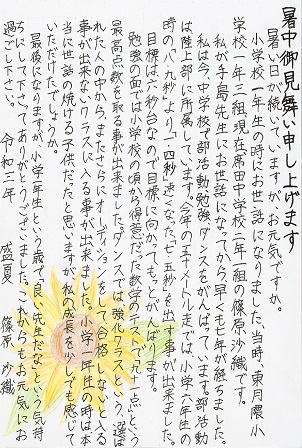 暑中御見舞い申し上げます
暑い日が続いていますが、お元気ですか。
小学校一年生の時にお世話になりました、当時、東月隈小
学校一年三組、現在席田中学校二年一組の篠原沙織です。
私が手島先生にお世話になってから早くも七年が経ちました。
私は今、中学校で部活動、勉強、ダンスをがんばっています。部活動
は陸上部に所属しています。
時の「八・九秒」より「一・四秒」速くなった「七・五秒」を出す事が出来ました。
目標は「六秒台」なので目標に向かって、もっとがんばります。
勉強の面では小学校の頃から得意だった数学のテストで「九十一点」という
最高点数を取る事が出来ました。ダンスでは、強化クラスという、選ば
れた人の中から、またさらにオーディションをして合格しないと入る
事が出来ないクラスに入る事が出来ました。小学一年生の時は本
当に世話の焼ける子供だったと思いますが、私の成長を少しでも感じて
いただけたでしょうか。
最後になりますが、小学一年生という歳で「良い先生だな」という気持
ちにして下さってありがとうございました。これからもお元気にお
過ごし下さい。
令和三年 盛夏
篠原 沙織